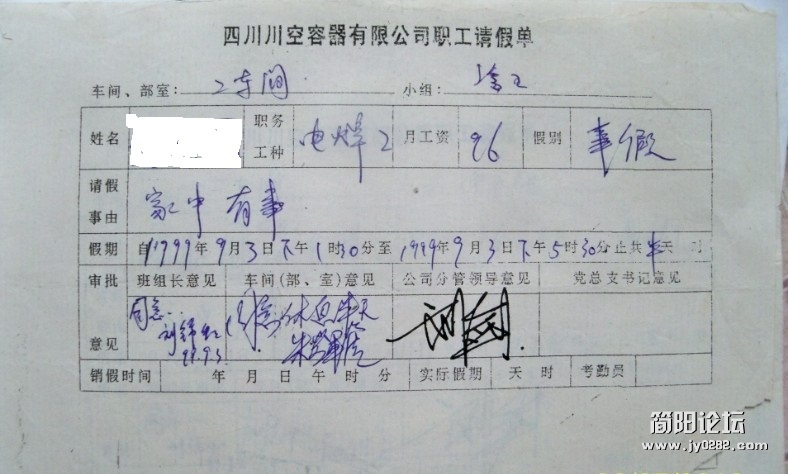 四川川空容器有限公司职工请假单
车间、部室: 2车间 小组:
姓名 职务工种 电焊2 月工资 96 假别 事假
请假事由 家中有事
假期 自1999年9月3日下午1时30分至1999年9月3日下午5时30分止共半天 时
审批意见 班组长意见 车间(部、室)意见 公司分管领导意见 党总支书记意见
同意
休息半天
销假时间 年 月 日 午 时 分 实际假期 天 时 考勤员
简阳论坛
www.jy0282.com